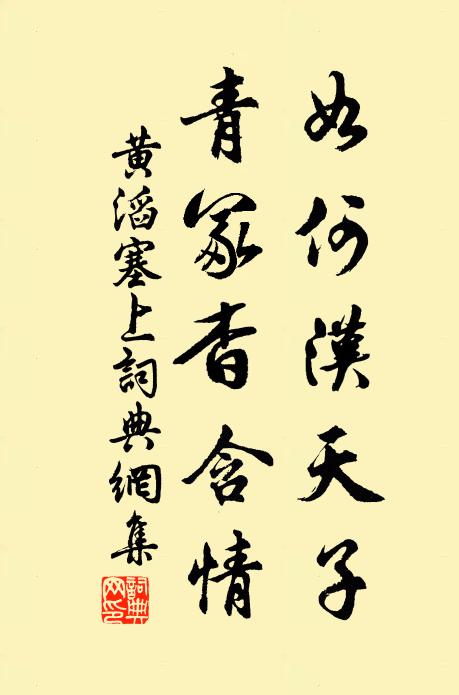 如何漢天子
青冢杳含情
黃滔塞上詞典網集
詞典
网印